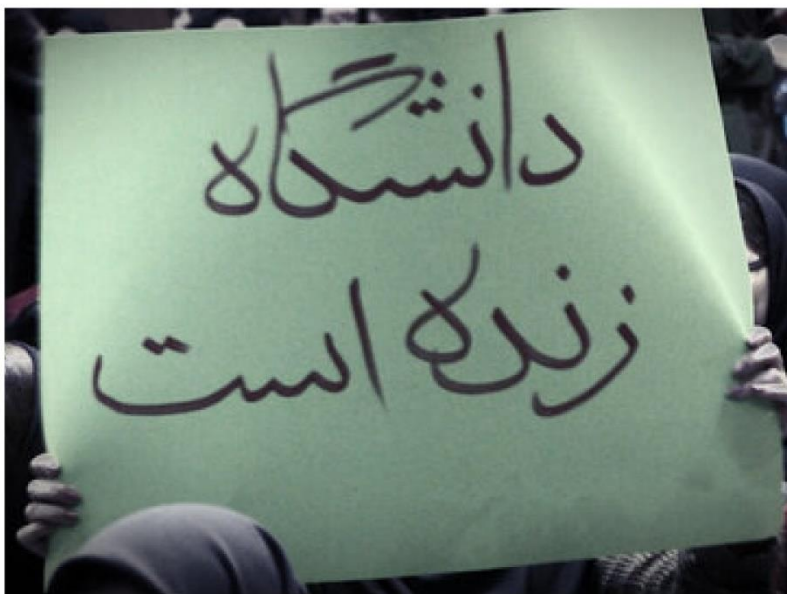 دانشگاه
زنده است